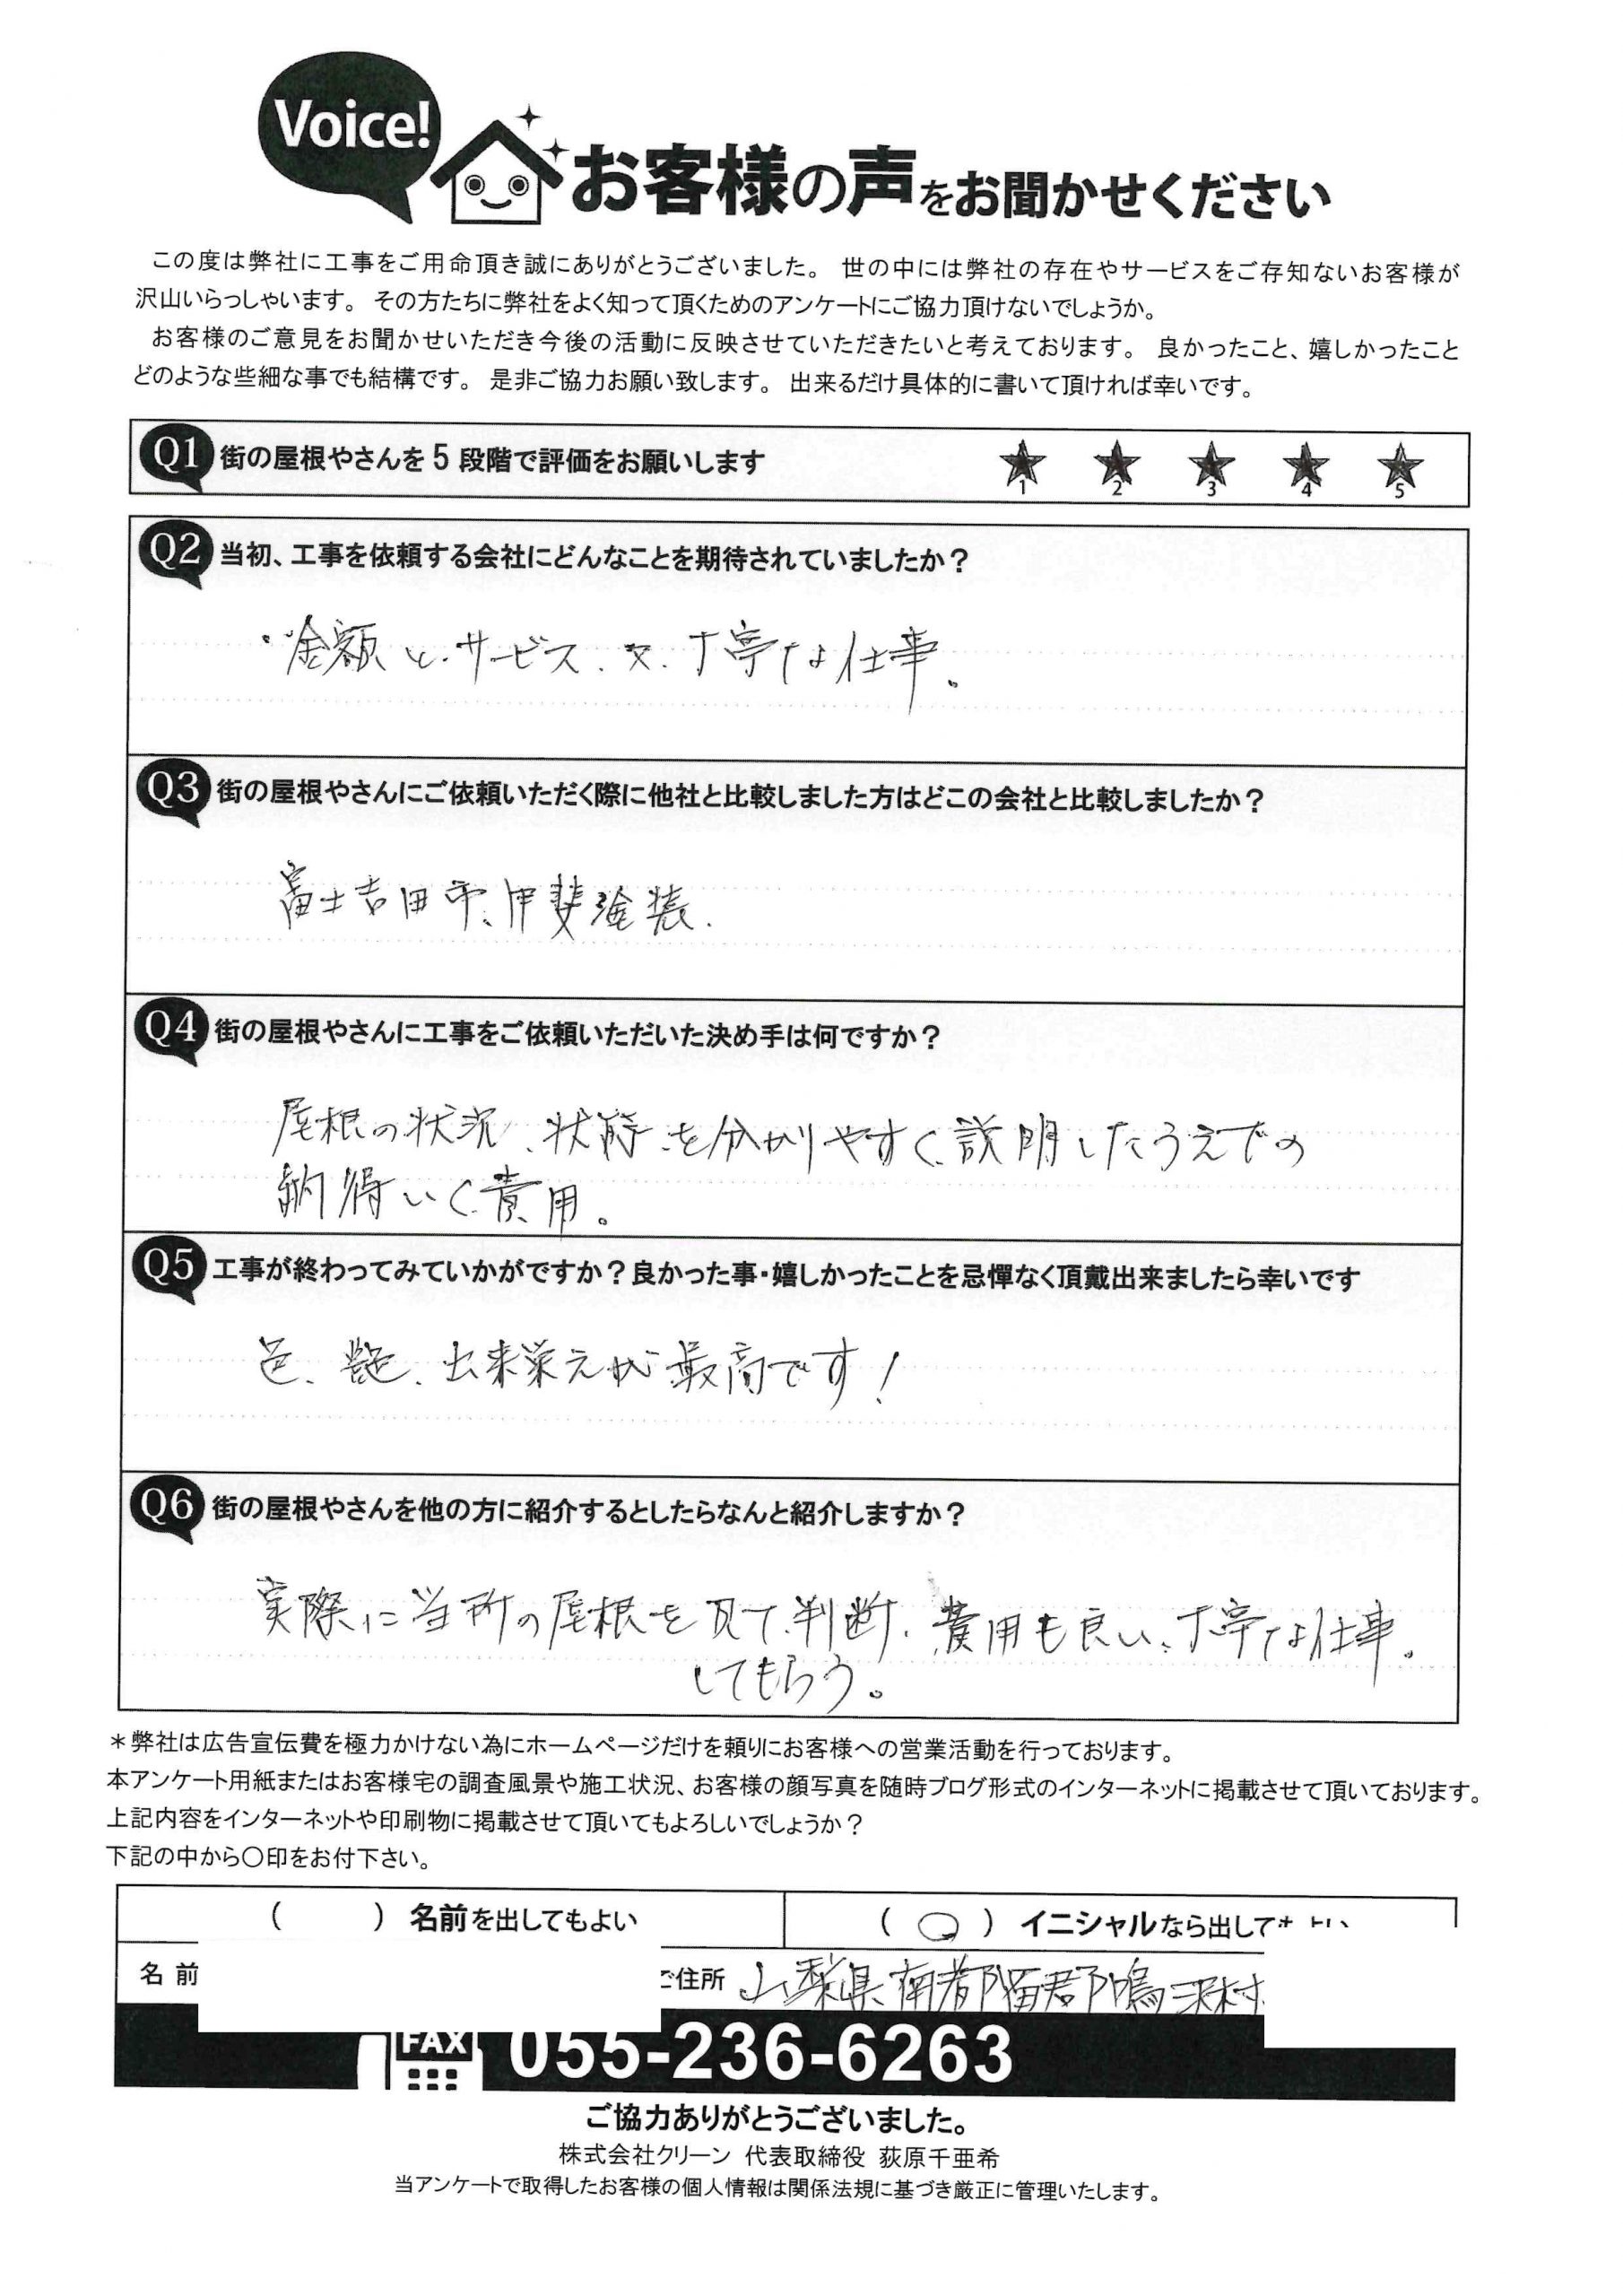 Voice!
お客様の声をお聞かせください
この度は弊社に工事をご用命頂き誠にありがとうございました。 世の中には弊社の存在やサービスをご存知ないお客様が
沢山いらっしゃいます。 その方たちに弊社をよく知って頂くためのアンケートにご協力頂けないでしょうか。
お客様のご意見をお聞かせいただき今後の活動に反映させていただきたいと考えております。 良かったこと、嬉しかったこと
どのような些細な事でも結構です。 是非ご協力お願い致します。 出来るだけ具体的に書いて頂ければ幸いです。
Q1 街の屋根やさんを5段階で評価をお願いします ★1 ★2 ★3 ★4 ★5
Q2 当初、工事を依頼する会社にどんなことを期待されていましたか?
・金額と、サービス、又、丁寧な仕事。
Q3 街の屋根やさんにご依頼いただく際に他社と比較しました方はどこの会社と比較しましたか?
富士吉田市、甲斐塗装.
Q4 街の屋根やさんに工事をご依頼いただいた決め手は何ですか?
屋根の状況、状態を分かりやすく説明したうえでの
納得いく費用。
Q5 工事が終わってみていかがですか?良かった事・嬉しかったことを忌憚なく頂戴出来ましたら幸いです
色、艶、出来栄えが最高です!
Q6 街の屋根やさんを他の方に紹介するとしたらなんと紹介しますか?
実際に当所の屋根を見て、判断、費用も良い、丁寧な仕事。
してもらう。
*弊社は広告宣伝費を極力かけない為にホームページだけを頼りにお客様への営業活動を行っております。
本アンケート用紙またはお客様宅の調査風景や施工状況、お客様の顔写真を随時ブログ形式のインターネットに掲載させて頂いております。
上記内容をインターネットや印刷物に掲載させて頂いてもよろしいでしょうか?
下記の中から〇印をお付下さい。
( ) 名前を出してもよい (○) イニシャルなら出して
名前 ご住所 山梨県南都留郡鳴沢村
FAX 055-236-6263
ご協力ありがとうございました。
株式会社クリーン 代表取締役 荻原千亜希
当アンケートで取得したお客様の個人情報は関係法規に基づき厳正に管理いたします。